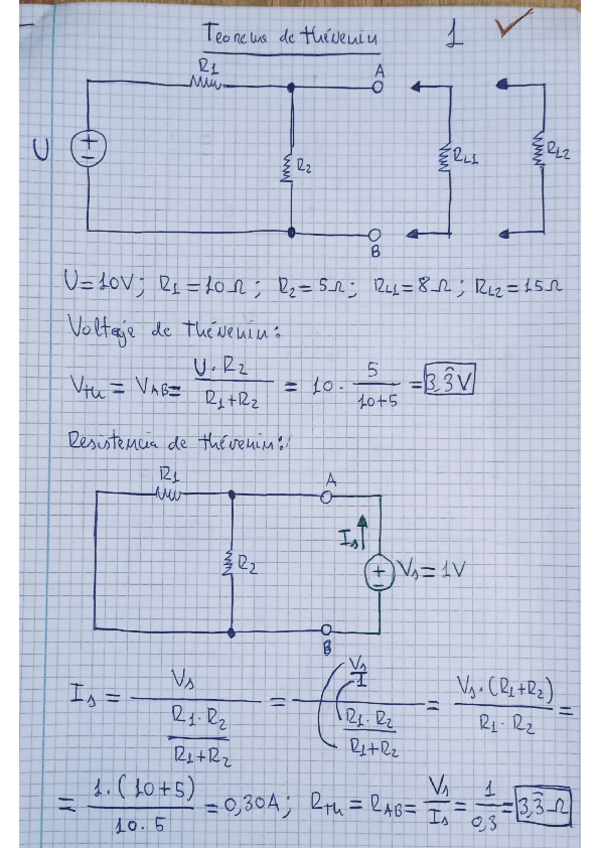 Teorema de thévenin 1
R1 A
U + − R2 RL1 RL2
B
U=10V; R1=10Ω; R2=5Ω; RL1=8Ω; RL2=15Ω
Voltaje de thévenin:
Vth = VAB = U·R2/(R1+R2) = 10 · 5/(10+5) = 3,3̂V
Resistencia de thévenin:
R1 A
Is
R2 + − Vs=1V
B
Is = Vs/((R1·R2)/(R1+R2)) = (Vs/1)/((R1·R2)/(R1+R2)) = Vs·(R1+R2)/(R1·R2) =
= 1·(10+5)/(10·5) = 0,30A; Rth = RAB = Vs/Is = 1/0,3 = 3,3̂ Ω